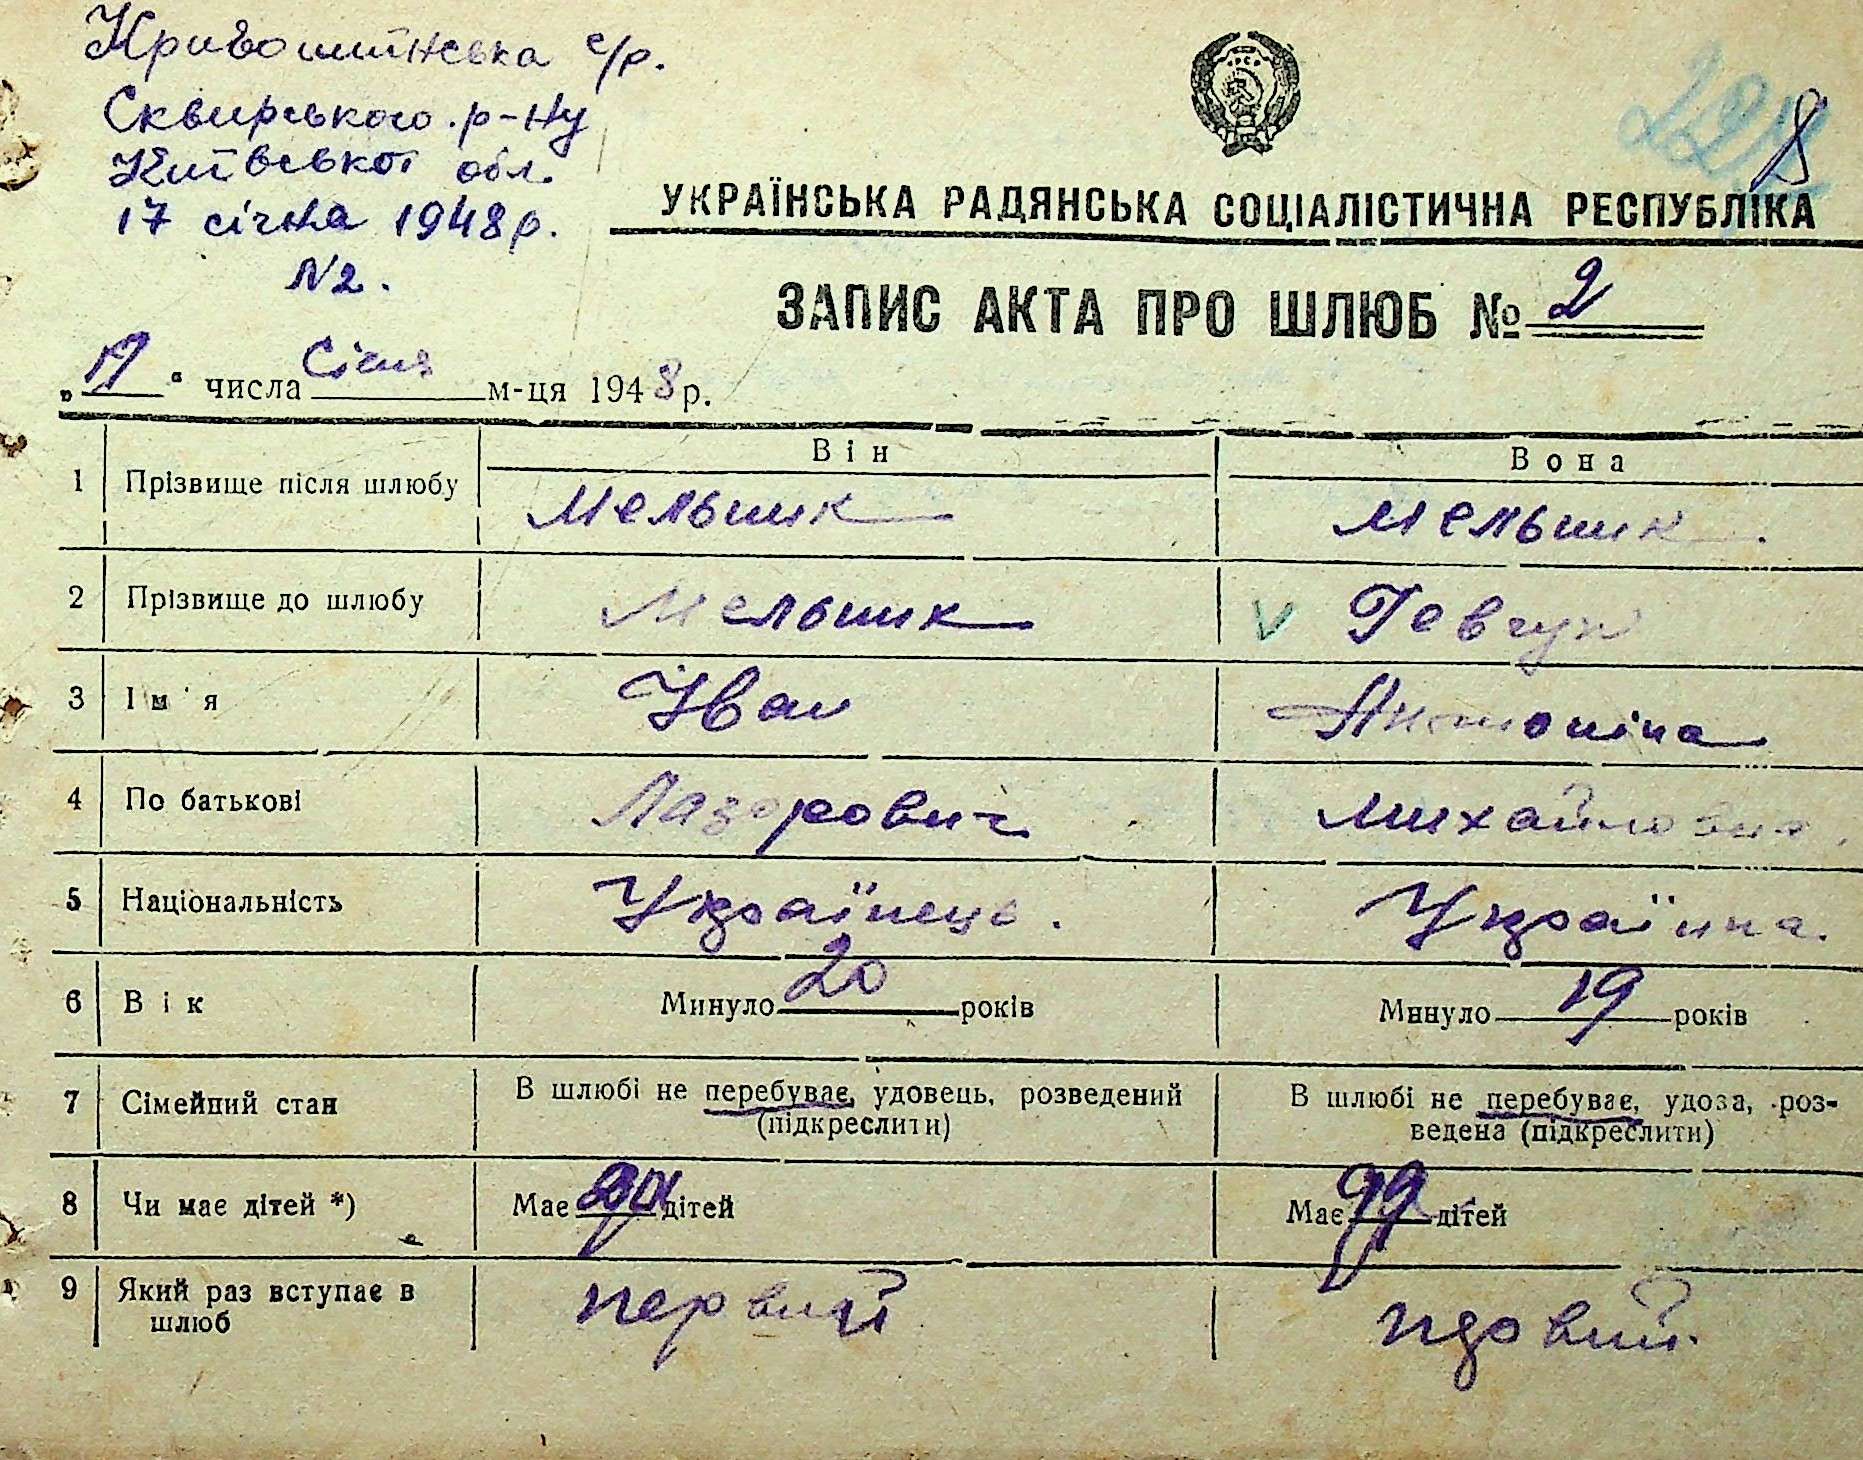 Кривошиїнська с/р.
Сквирського р-ну
Київської обл.
17 січня 1948 р.
N2.
УКРАЇНСЬКА РАДЯНСЬКА СОЦІАЛІСТИЧНА РЕСПУБЛІКА
ЗАПИС АКТА ПРО ШЛЮБ № 2
„17“ числа Січня м-ця 1948 р.
Він Вона
1 Прізвище після шлюбу Мельник Мельник
2 Прізвище до шлюбу Мельник V Гевчук
3 Ім'я Іван Антоніна
4 По батькові Лазорович Михайловна
5 Національність Українець. Українна.
6 Вік Минуло 20 років Минуло 19 років
7 Сімейний стан В шлюбі не перебуває, удовець, розведений (підкреслити) В шлюбі не перебуває, удова, роз-
ведена (підкреслити)
8 Чи має дітей *) Має дітей Має дітей
9 Який раз вступає в первий
шлюб